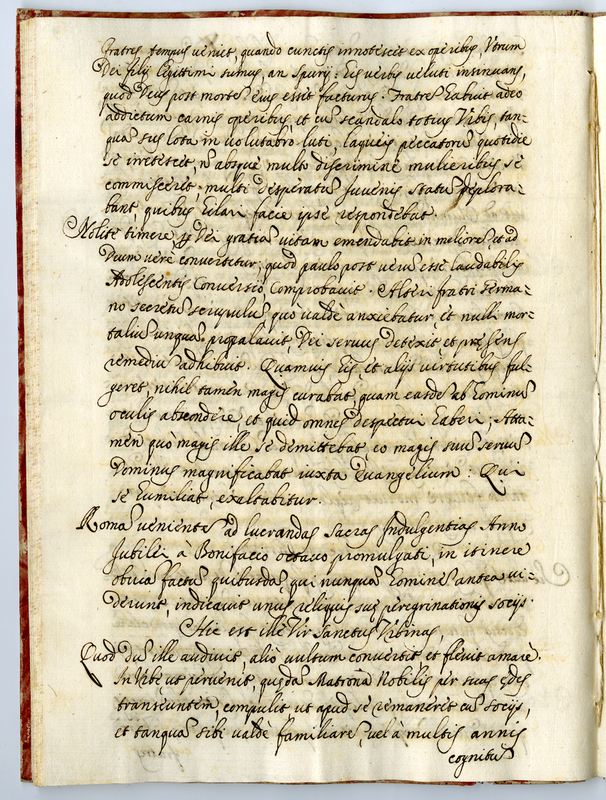 Fratres tempus veniet, quando cunctis innotescet ex operibus, Utrum
Dei filij legittimi sumus, an spurij: Eis verbis veluti insinuans,
quod Deus post mortē eius esset facturus. Fratrē habuit adeo
addictum carnis operibus et cū scandalo totius Urbis, tan-
quā sus lota in volutabro luti, laqueis peccatorū quotidie
se irretiret, n̄ absque multo discrimine mulieribus se
commisceret. multi desperatū Juvenis statū deplora-
bant, quibus hilari facie ipse respondebat.
Nolite timere, q̄ Dei gratiā vitam emendabit in meliorē, et ad
Deum verè convertetur; quod paulo post verū esse laudabilis
Adolescentis Conversio Comprobavit. Alteri fratri Germa-
no secretū scrupulū, quo valdè anxiebatur, et nulli mor-
taliū unquā propalavit, Dei servus detexit et præsens
remediū adhibuit. Quamvis his et alijs virtutibus ful-
geret, nihil tamen magis curabat, quam easdē ab hominū
oculis abscondere, et quid omnes despectui haberi; Atta-
men quo magis ille se demittebat, eo magis suū servū
Dominus magnificabat iuxta Evangelium: Qui
se humiliat, exaltabitur.
Romā venientes ad lucrandas Sacras Indulgentias Anno
Jubilei a Bonifacio octavo promulgati, in itinere
obviā factus quibusdā qui nunquā hominē antea vi-
derunt, indicavit unus reliquis suę peregrinationis socijs.
Hic est ille Vir sanctus Urbinas,
Quod dū ille audivit, aliò vultum convertit et flevit amarè.
In Urbē ut pervenit, quędā Matrona Nobilis per suas ędes
transeuntem, compulit ut apud se remaneret cū socijs,
et tanquā sibi valdè familiarē, vel à multis annis
cognitū